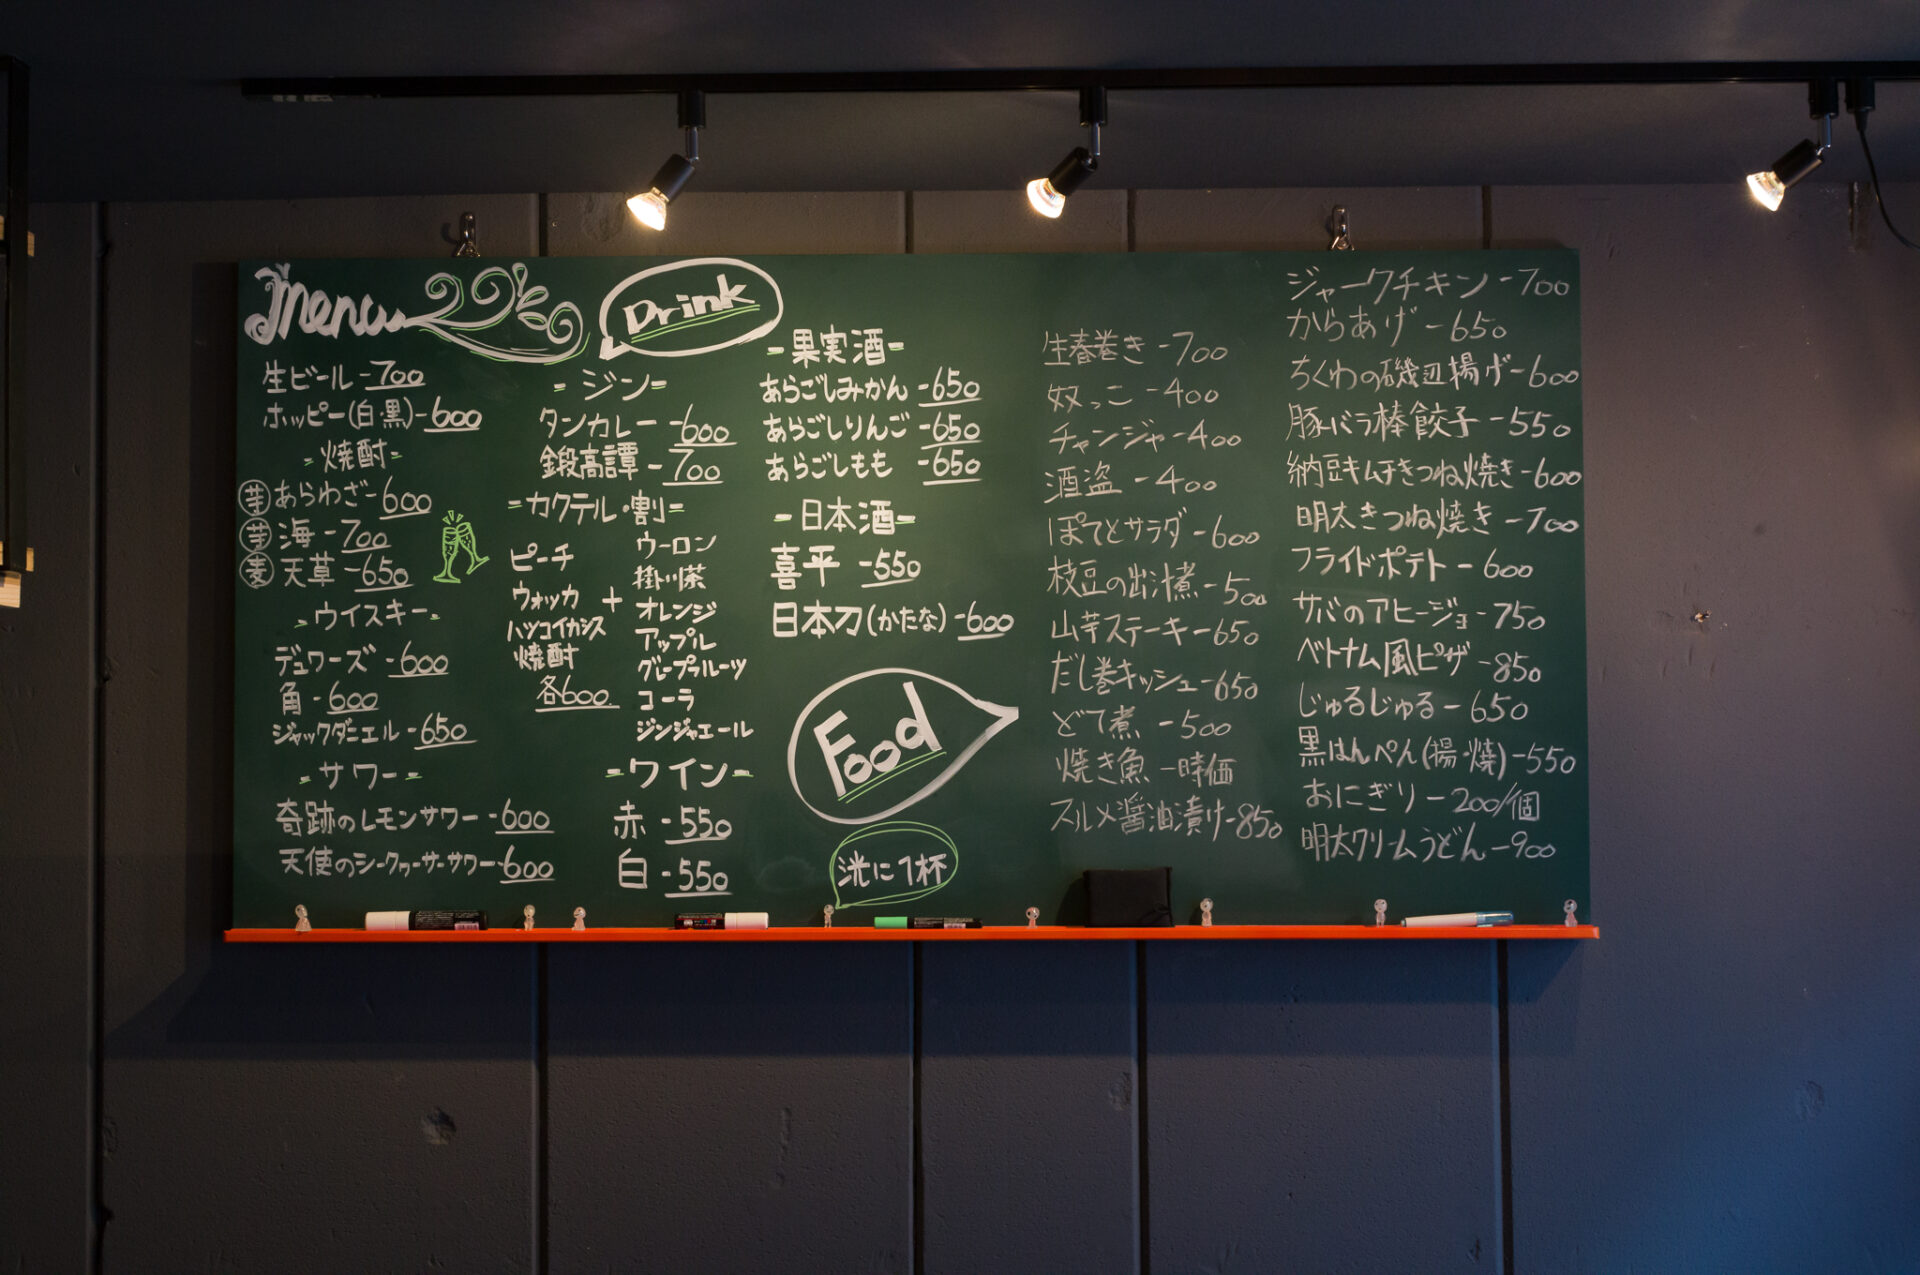 Menu
Drink
生ビール-700
ホッピー(白・黒)-600
-焼酎-
芋 あらわざ-600
芋 海-700
麦 天草-650
-ウイスキー-
デュワーズ-600
角-600
ジャックダニエル-650
-サワー-
奇跡のレモンサワー-600
天使のシークヮーサーサワー-600
-ジン-
タンカレー-600
鍛高譚-700
-カクテル・割-
ピーチ
ウォッカ
ハツコイカシス
焼酎
各600.
+
ウーロン
掛川茶
オレンジ
アップル
グレープフルーツ
コーラ
ジンジャエール
-ワイン-
赤-550
白-550
-果実酒-
あらごしみかん-650
あらごしりんご-650
あらごしもも-650
-日本酒-
喜平-550
日本刀(かたな)-600
Food
洸に1杯
生春巻き-700
奴っこ-400
チャンジャ-400
酒盗-400
ぽてとサラダ-600
枝豆の出汁煮-500
山芋ステーキ-650
だし巻キッシュ-650
どて煮-500
焼き魚-時価
スルメ醤油漬け-850
ジャークチキン-700
からあげ-650
ちくわの磯辺揚げ-600
豚バラ棒餃子-550
納豆キムチきつね焼き-600
明太きつね焼き-700
フライドポテト-600
サバのアヒージョ-750
ベトナム風ピザ-850
じゅるじゅる-650
黒はんぺん(揚・焼)-550
おにぎり-200/個
明太クリームうどん-900